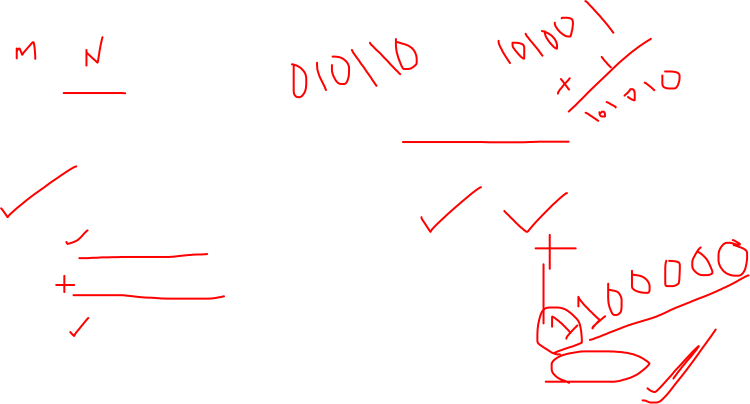 M N
010110
101001
+ 1
101010
+
+
1100000